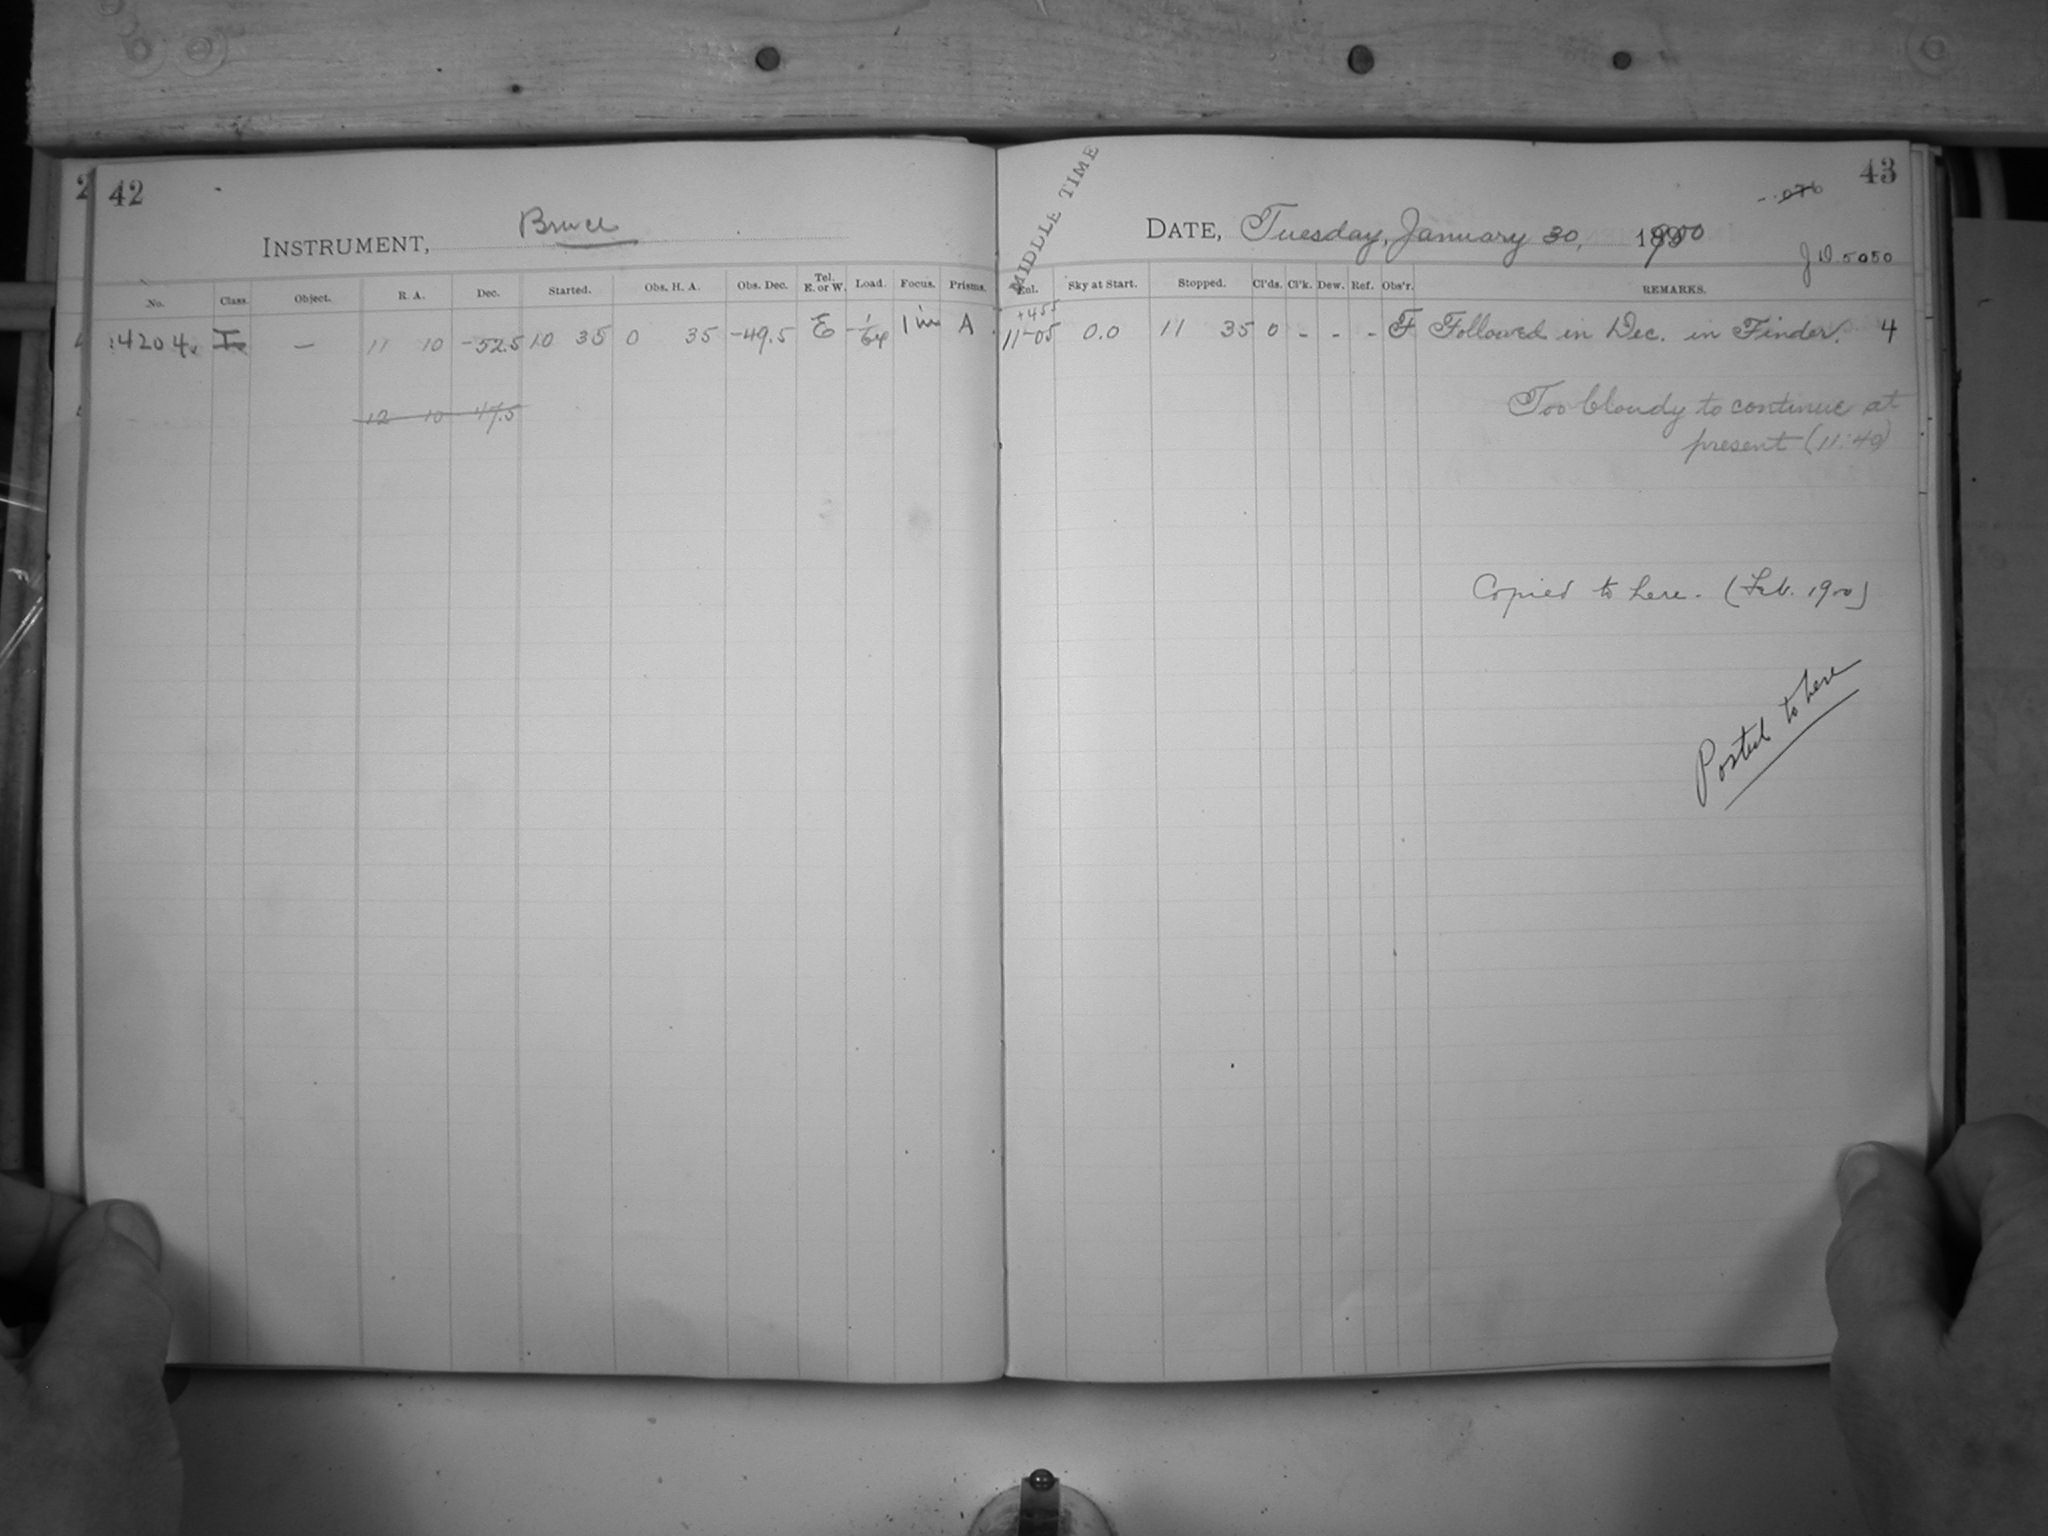 2 42
Bruce
INSTRUMENT,
No. Class. Object. R. A. Dec. Started. Obs. H. A. Obs. Dec. Tel. E. or W. Load. Focus. Prisms.
4204 I — 11 10 -52.5 10 35 0 35 -49.5 E 1/64 1 in A
12 10 47.5
43
MIDDLE TIME
DATE, Tuesday, January 30, 1900
J D. 5050
Sky at Start. Stopped. Cl'ds. Cl'k. Dew. Ref. Obs'r. REMARKS.
+455
11-05 0.0 11 35 0 - - - F Followed in Dec. in Finder. 4
Too Cloudy to continue at
present (11:40)
Copied to here. (Feb. 1900)
Posted to here